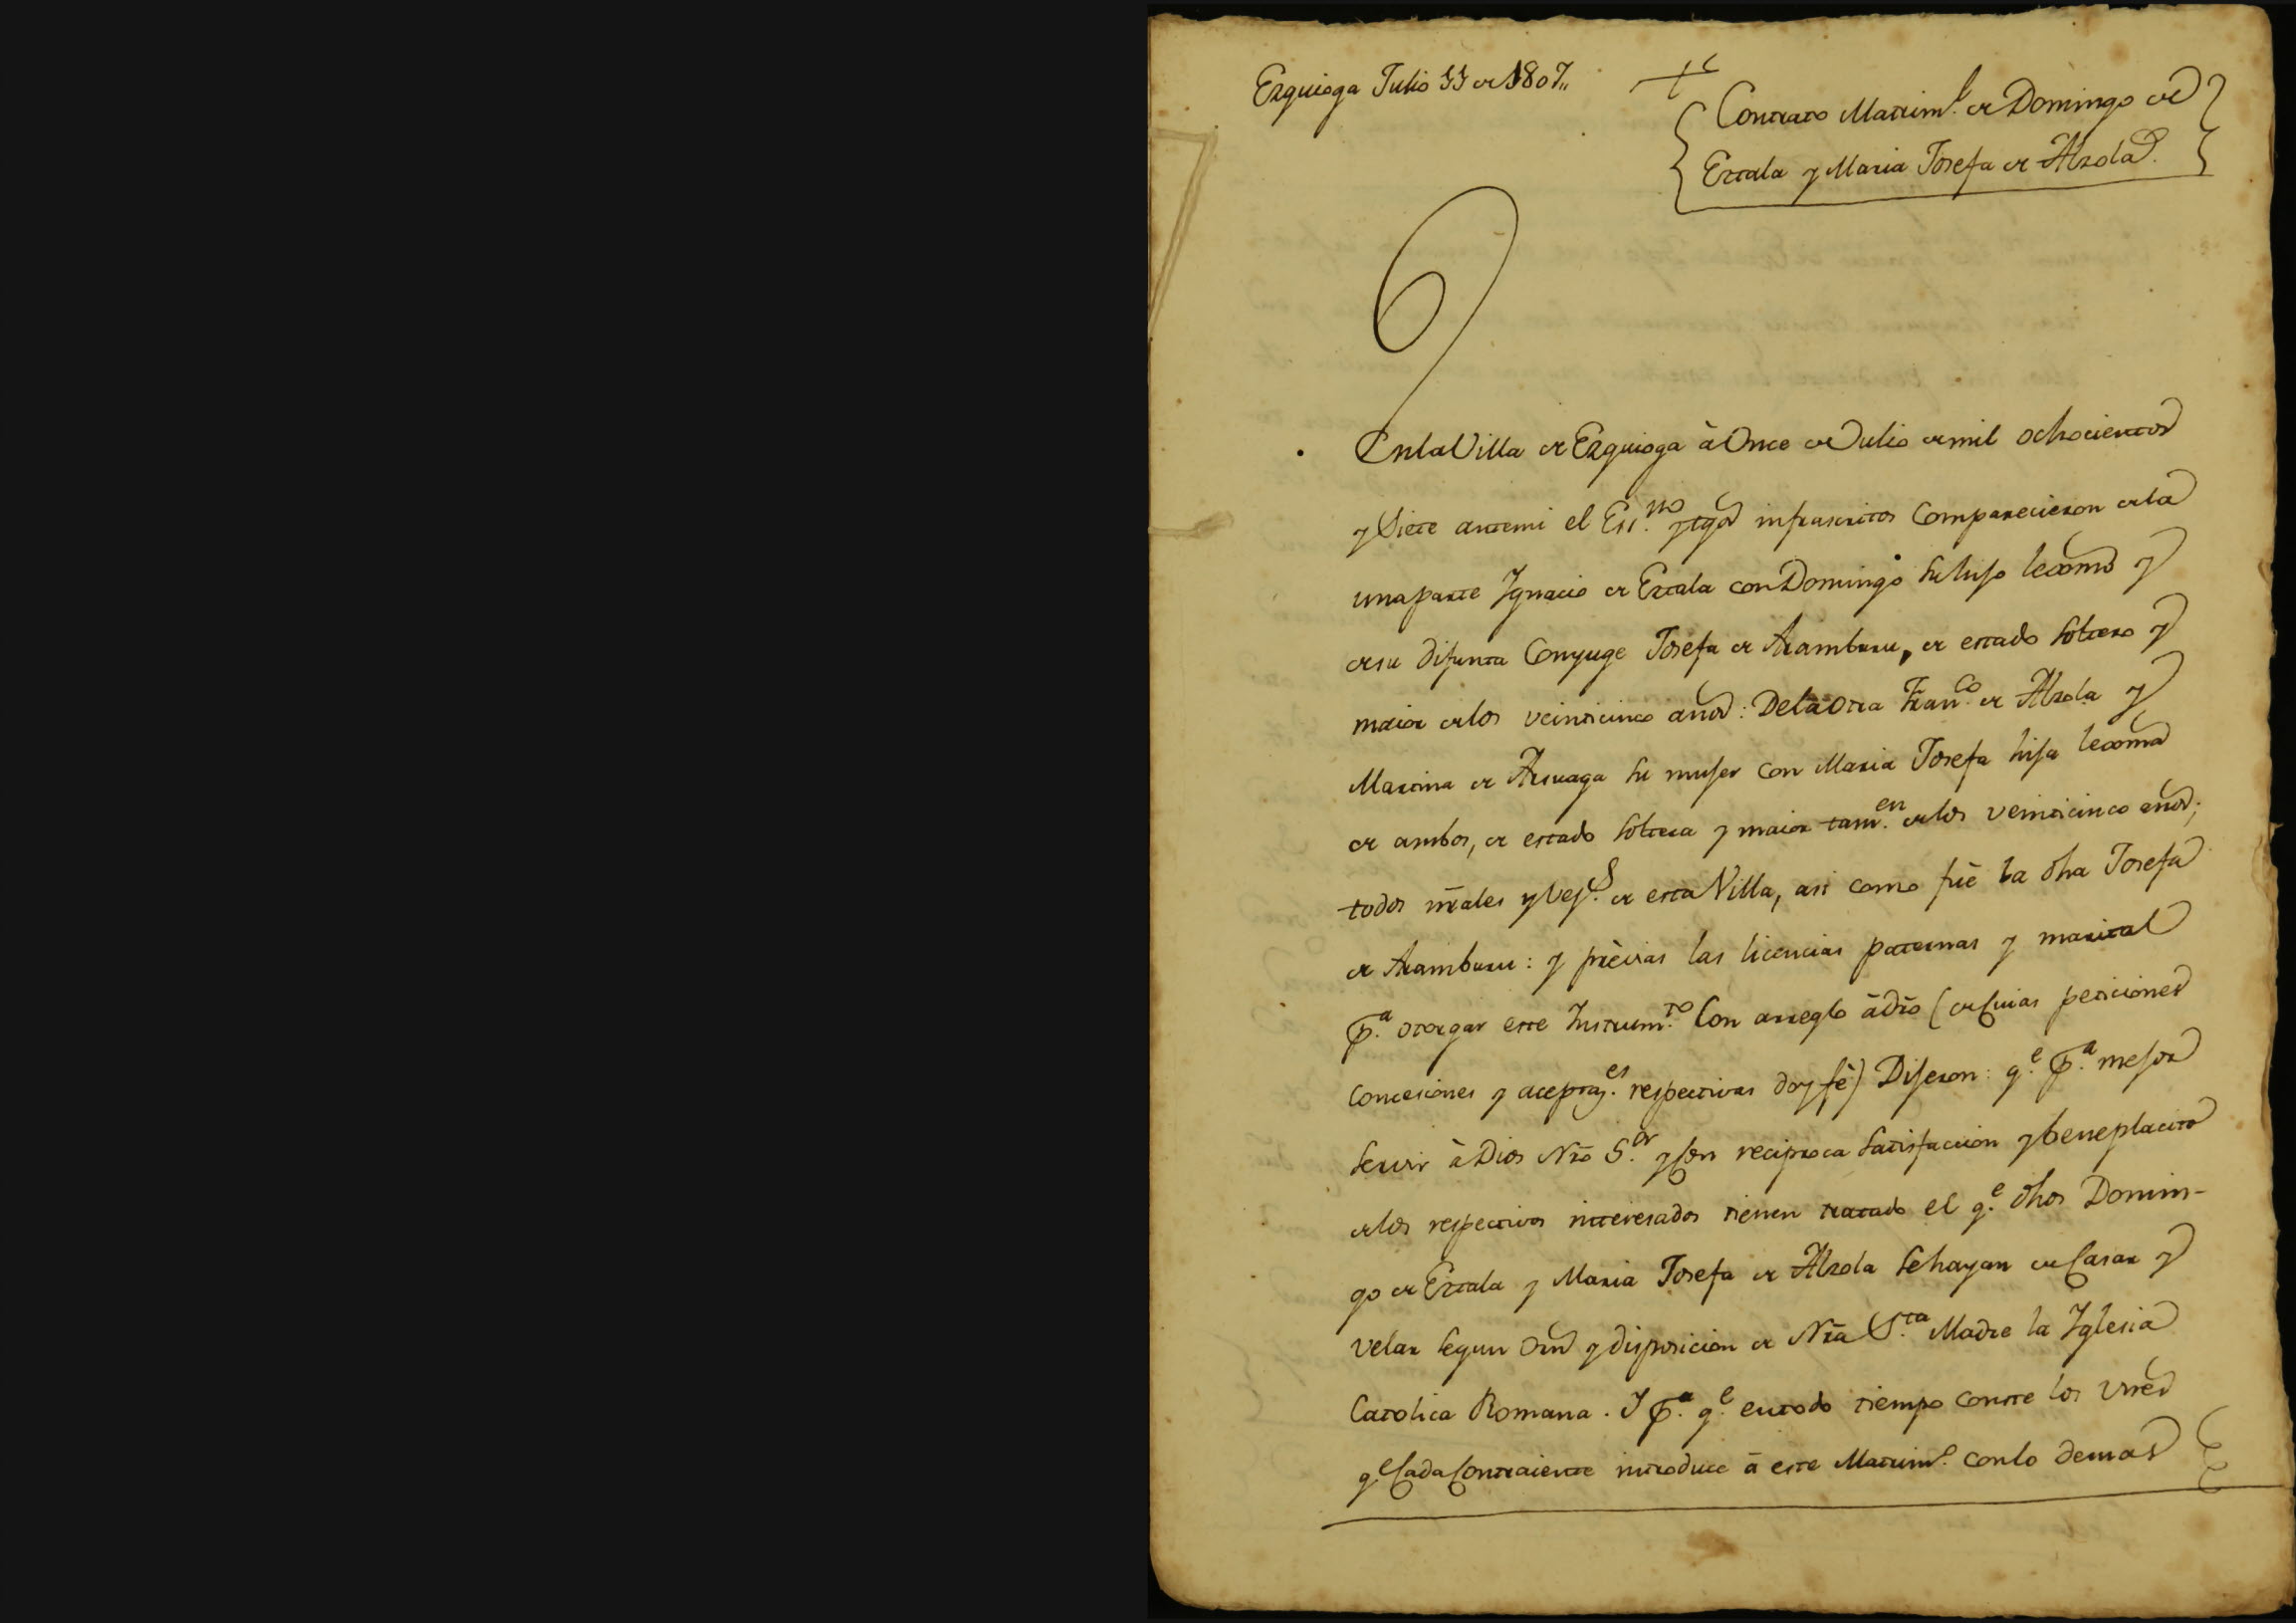 Ezquioga Julio 11 de 1807,,
Contrato Matrim.l de Domingo de
Eztala y Maria Josefa de Alzola.
En la Villa de Ezquioga à Once de Julio de mil ochocientos
y Siete ante mi el Es.no y tgos infrascritos Comparecieron de la
una parte Ignacio de Eztala con Domingo su hijo lexmo y
de su difunta Conyuge Josefa de Aramburu, de estado soltero y
maior de los veinticinco años: De la otra Fran.co de Alzola y
Martina de Arsuaga su muger con Maria Josefa hija lexma
de ambos, de estado soltera y maior tam.en de los veinticinco años;
todos nrales y vez.s de esta Villa, asi como fuè la dha Josefa
de Aramburu: y prèvias las licencias paternas y marital
p.a otorgar este Instrum.to Con arreglo à dro (de cuias peticiones
Concesiones y aceptaz.es respectivas doy fè) Dijeron: q.e p.a mejor
servir à Dios Nro S.or y con reciproca satisfaccion y beneplacito
de los respectivos interesados tienen tratado el q.e dhos Domin-
go de Eztala y Maria Josefa de Alzola se hayan de Casar y
velar segun orn y disposicion de Nra S.ta Madre la Iglesia
Catolica Romana. I p.a q.e en todo tiempo conste los vnes
q.e Cada Contraiente introduce à este Matrim.o con lo demas